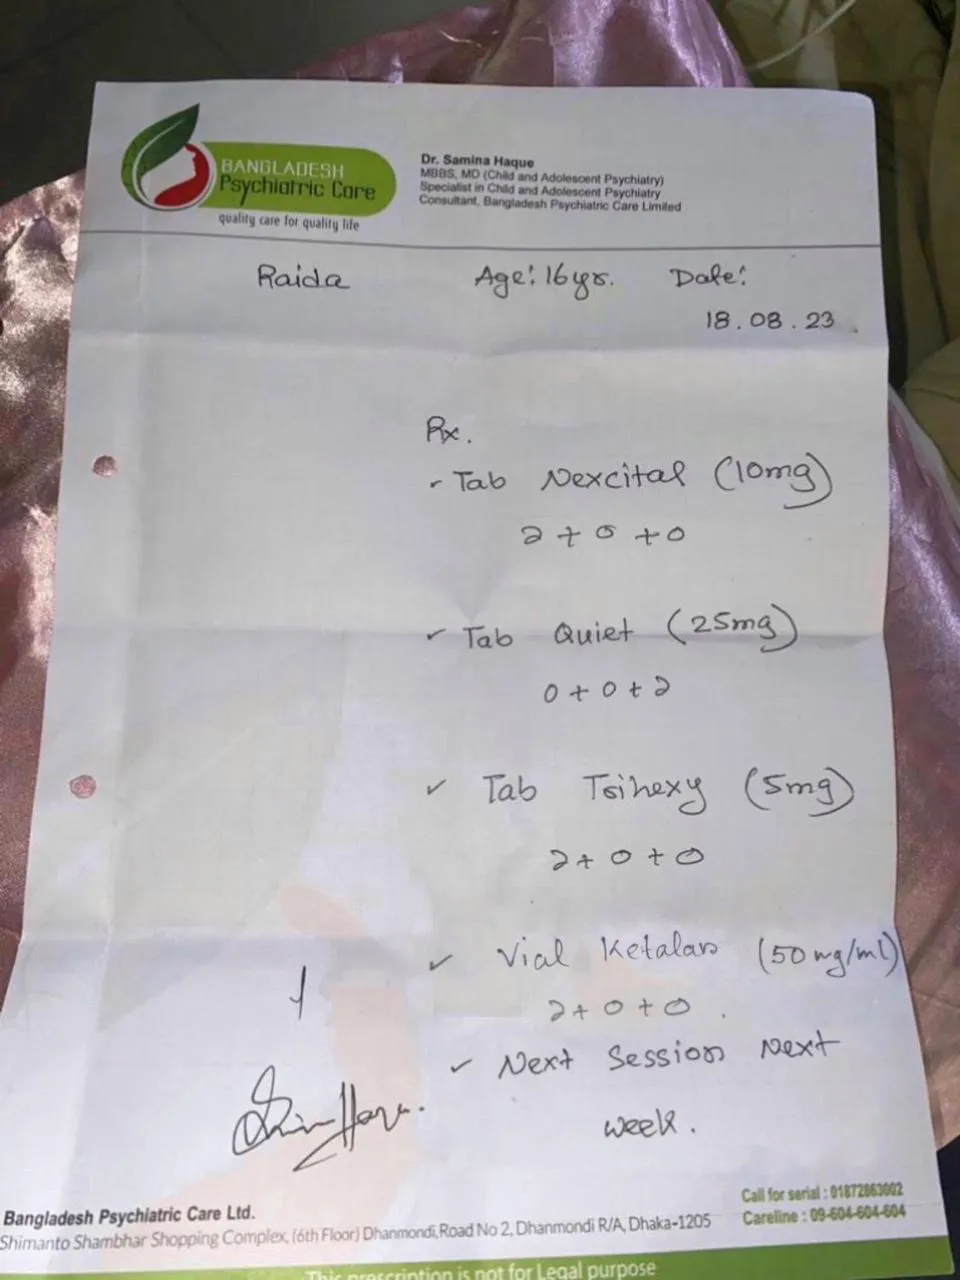 BANGLADESH
Psychiatric Care
quality care for quality life
Dr. Samina Haque
MBBS, MD (Child and Adolescent Psychiatry)
Specialist in Child and Adolescent Psychiatry
Consultant, Bangladesh Psychiatric Care Limited
Raida Age: 16 yrs. Date:
18.08.23.
Rx.
Tab Nexcital (10mg)
2+0+0
Tab Quiet (25mg)
0+0+2
Tab Trihexy (5mg)
2+0+0
Vial Ketalar (50 mg/ml)
2+0+0.
Next Session Next
week.
Bangladesh Psychiatric Care Ltd.
Shimanto Shambhar Shopping Complex, (6th Floor) Dhanmondi, Road No 2, Dhanmondi R/A, Dhaka-1205
Call for serial : 01872863002
Careline : 09-604-604-604
This prescription is not for Legal purpose